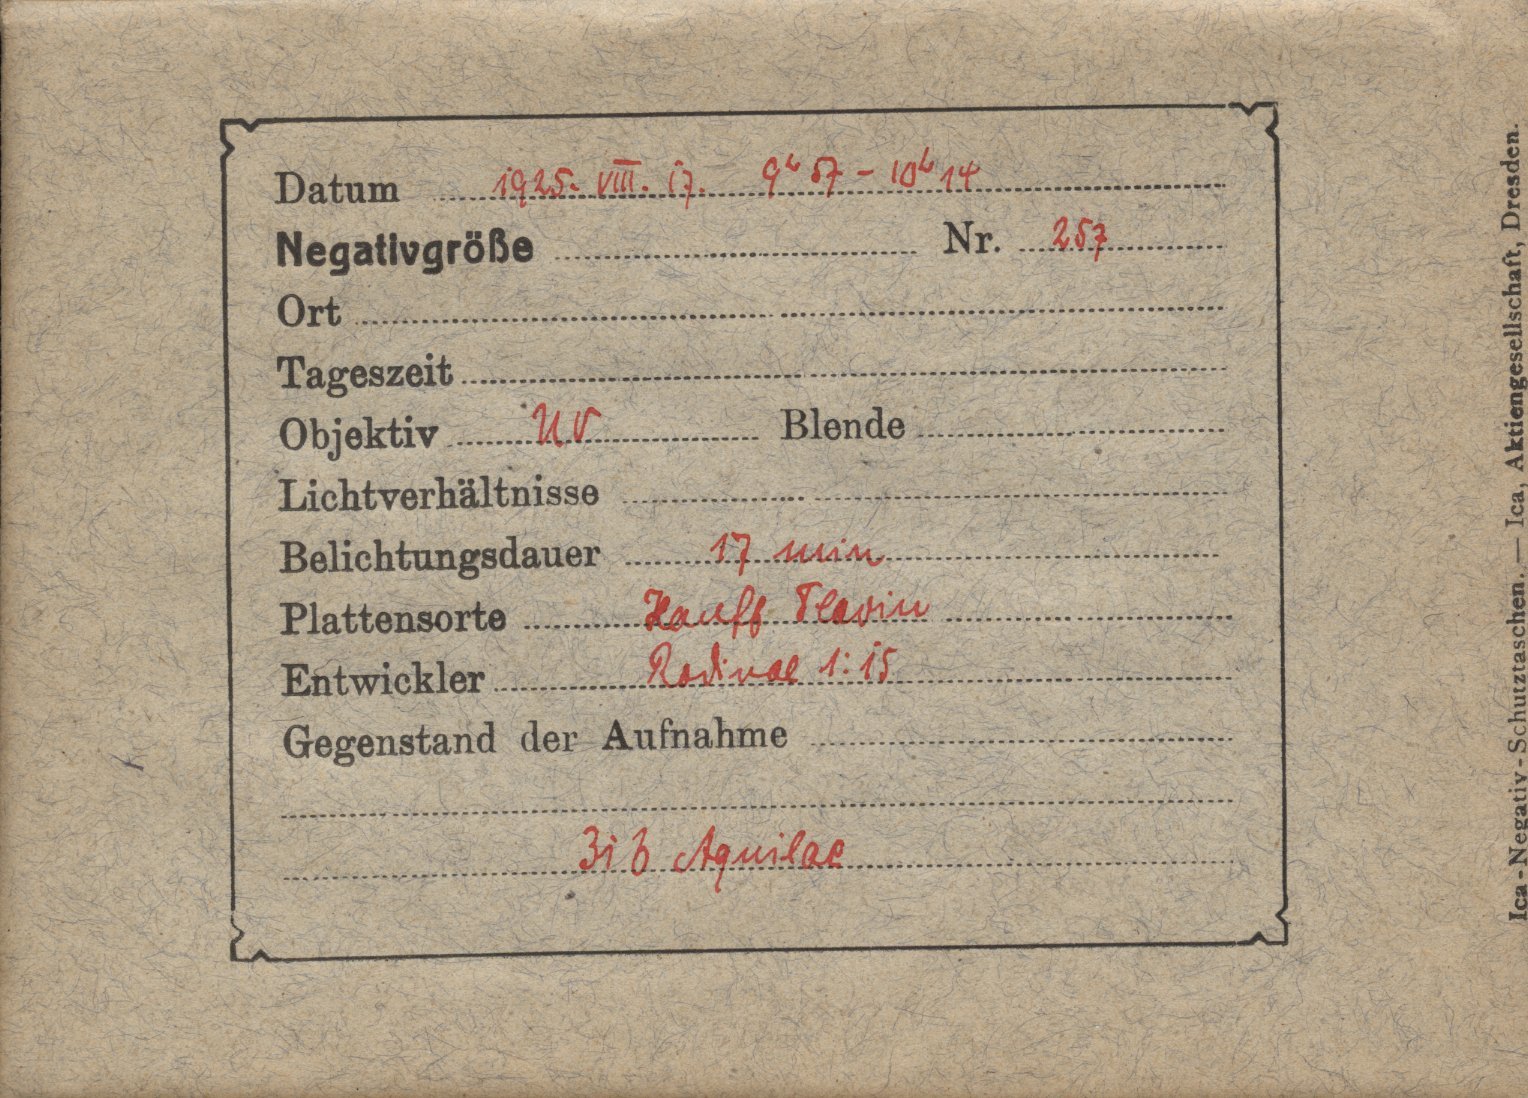 Datum 1925. VIII. 17. 9h 57 - 10h 14
Negativgröße Nr. 257
Ort
Tageszeit
Objektiv UV Blende
Lichtverhältnisse
Belichtungsdauer 17 min
Plattensorte Hauff Flavin
Entwickler Rodinal 1:15
Gegenstand der Aufnahme
Aquilae
Ica-Negativ-Schutztaschen. — Ica, Aktiengesellschaft, Dresden.